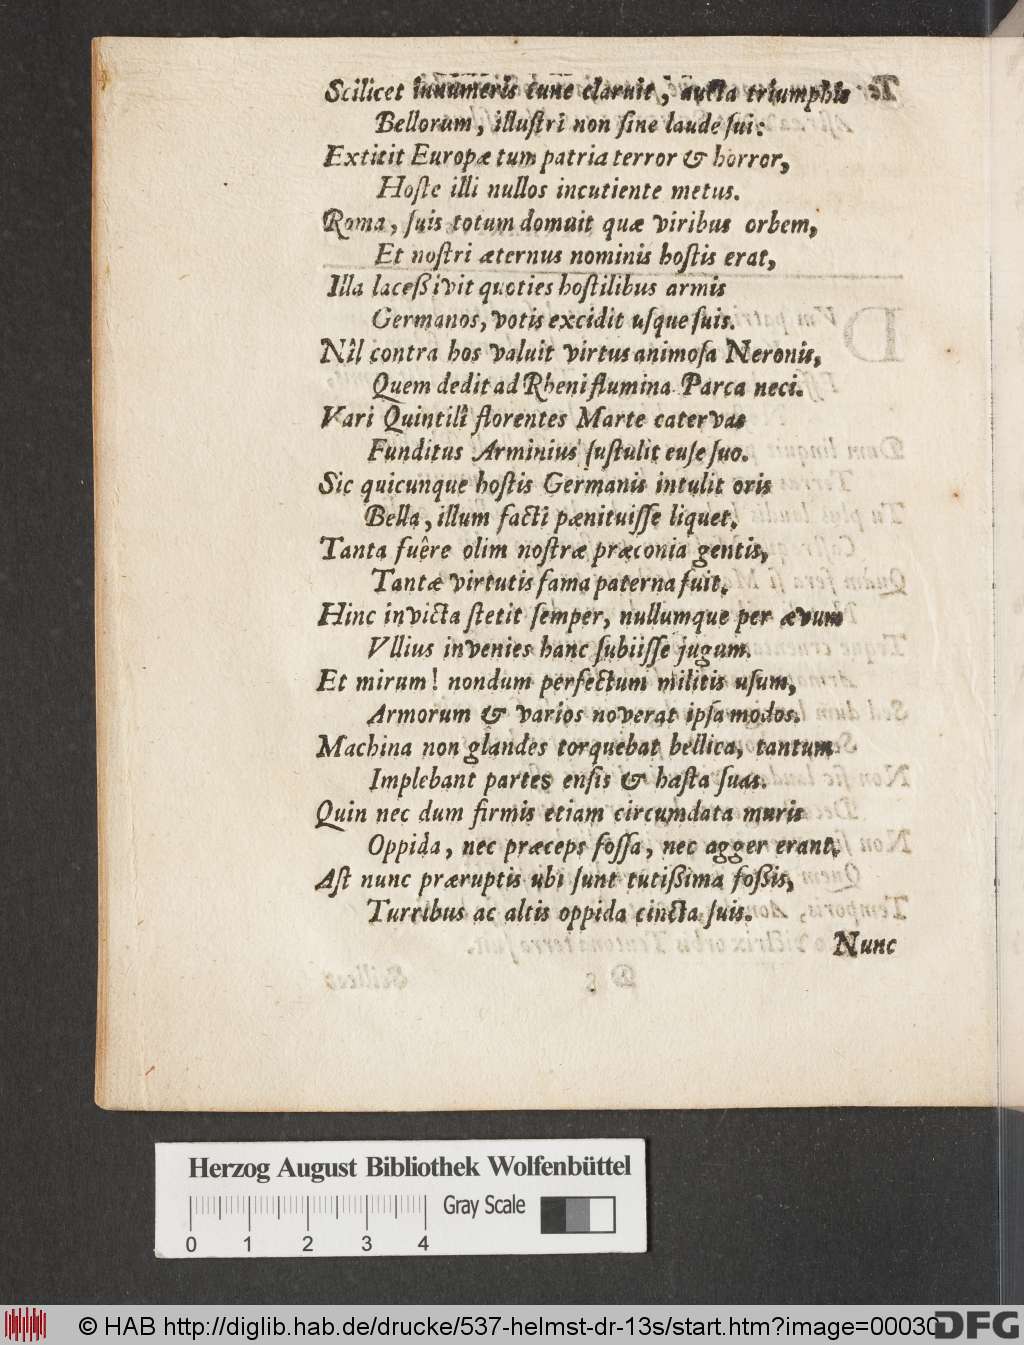 Scilicet innumeris tunc claruit, aucta triumphis
Bellorum, illuſtri non ſine laude ſui:
Extitit Europæ tum patria terror & horror,
Hoſte illi nullos incutiente metus.
Roma, ſuis totum domuit quæ viribus orbem,
Et noſtri æternus nominis hoſtis erat,
Illa laceßivit quoties hoſtilibus armis
Germanos, votis excidit uſque ſuis.
Nil contra hos valuit virtus animoſa Neronis,
Quem dedit ad Rheni flumina Parca neci.
Vari Quintilî florentes Marte catervas
Funditus Arminius ſuſtulit enſe ſuo.
Sic quicunque hoſtis Germanis intulit oris
Bella, illum facti pænituiſſe liquet.
Tanta fuêre olim noſtræ præconia gentis,
Tantæ virtutis fama paterna fuit.
Hinc invicta ſtetit ſemper, nullumque per ævum
Vllius invenies hanc ſubiiſſe jugum.
Et mirum! nondum perfectum militis uſum,
Armorum & varios noverat ipſa modos.
Machina non glandes torquebat bellica, tantum
Implebant partes enſis & haſta ſuas.
Quin nec dum firmis etiam circumdata muris
Oppida, nec præceps foſſa, nec agger erant.
Aſt nunc præruptis ubi ſunt tutißima foßis,
Turribus ac altis oppida cincta ſuis.
Nunc
Herzog August Bibliothek Wolfenbüttel
Gray Scale
0 1 2 3 4
© HAB http://diglib.hab.de/drucke/537-helmst-dr-13s/start.htm?image=00030
DFG